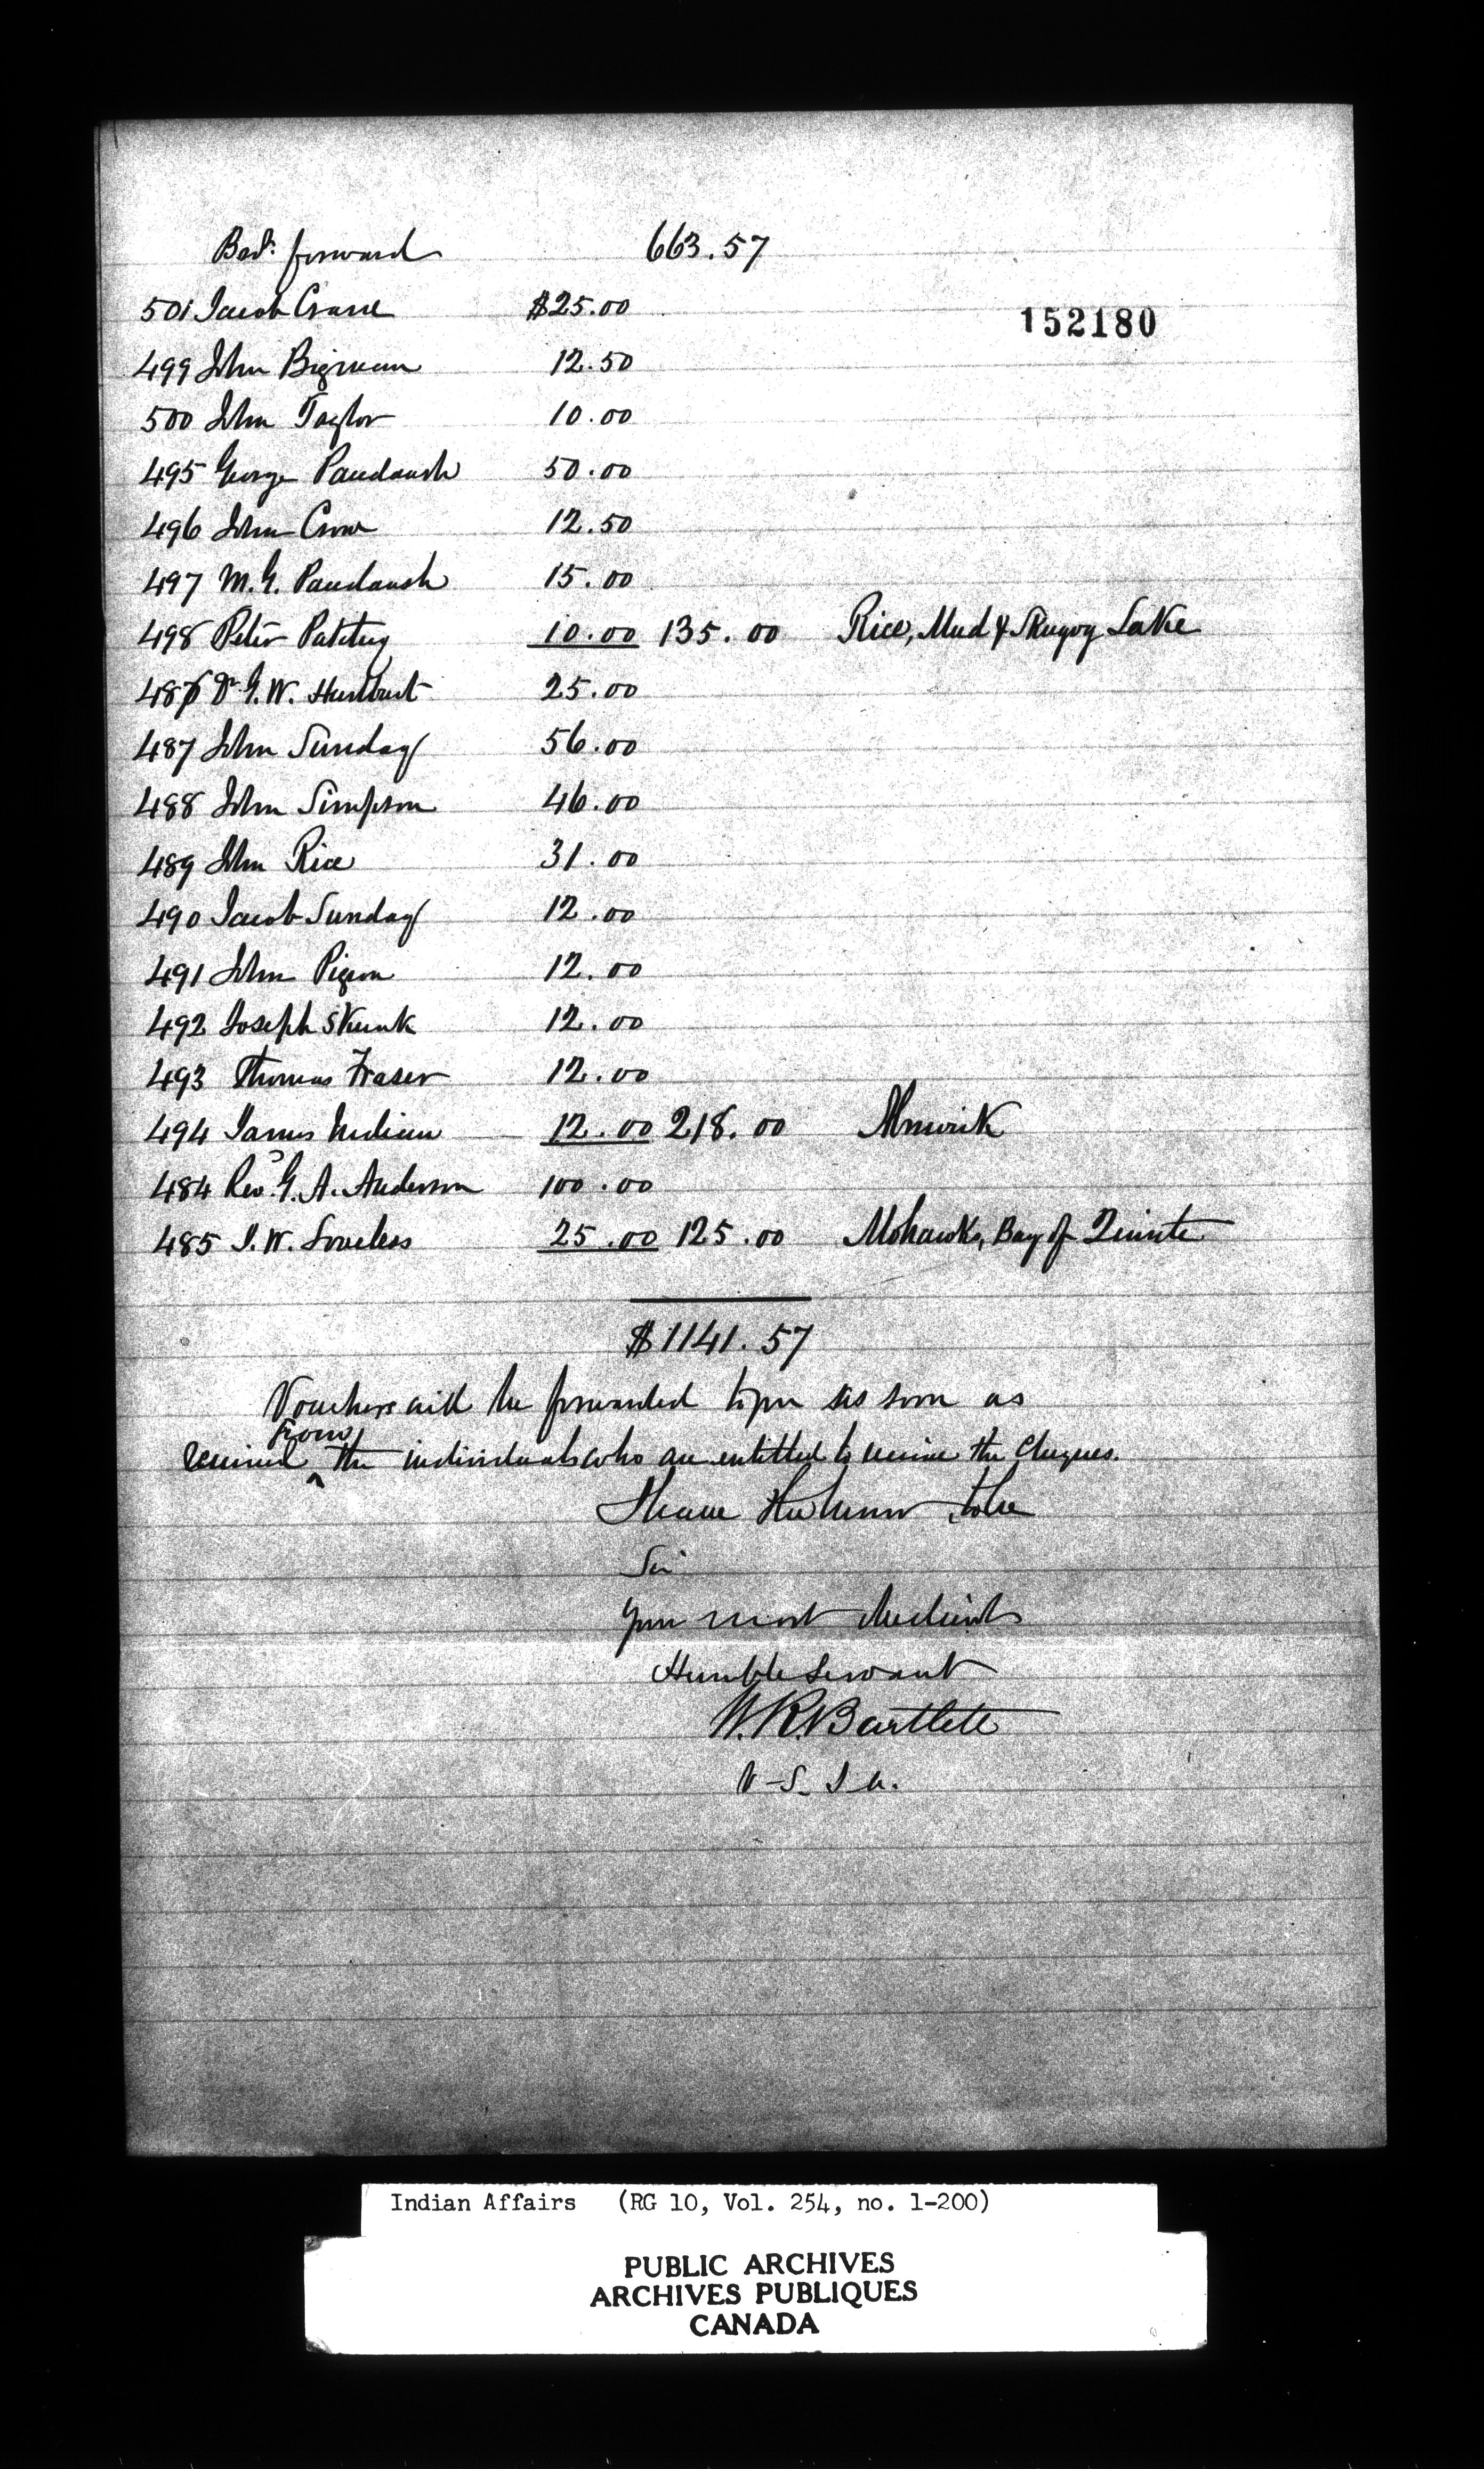 Bot. forward 663.57
501 Jacob Crane $25.00
152180
499 John Bigman 12.50
500 John Taylor 10.00
495 George Paudaush 50.00
496 John Crow 12.50
497 M. G. Paudaush 15.00
498 Peter 10.00 135.00 Rice, Mud & Skugog Lake
486 Dr. G. W. 25.00
487 John Sunday 56.00
488 John Simpson 46.00
489 John Rice 31.00
490 Jacob Sunday 12.00
491 John Pigeon 12.00
492 Joseph Skunk 12.00
493 Thomas Fraser 12.00
494 James Indian 12.00 218.00 Alnwick
484 Revd. G. A. Anderson 100.00
485 J. W. Loveless 25.00 125.00 Mohawks, Bay of Quinte
$1141.57
Vouchers will be forwarded to you as soon as
from
received ^ the individuals who are entitled to receive the cheques.
I have the honor to be
Sir
Your most obedient
Humble Servant
W. R. Bartlett
V-S. I A.
Indian Affairs (RG 10, Vol. 254, no. 1-200)
PUBLIC ARCHIVES
ARCHIVES PUBLIQUES
CANADA